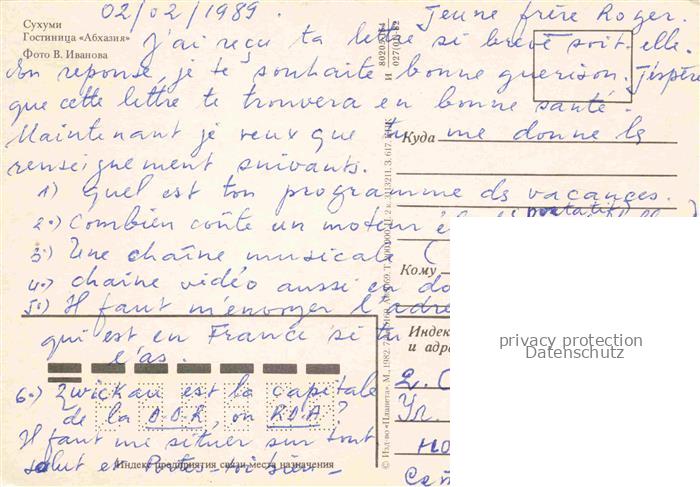 02/02/1989.
Jeune frère Roger.
Сухуми
Гостиница «Абхазия»
Фото В. Иванова
J'ai reçu ta lettre si brève soit-elle.
En reponse, je te souhaite bonne guerison. J'éspère
que cette lettre te trouvera en bonne santé.
Maintenant je veux que tu me donne les
renseignement suivants.
Куда
1) quel est ton programme ds vacances.
2°) Combien coûte un moteur portatif
3°) Une chaîne musicale (
Кому
4°) chaîne vidéo aussi en do
5°) Il faut m'envoyer l'adre
qui est en France si tu
l'as.
Индек
и адр
privacy protection
Datenschutz
6°) Zwickau est la capitale
de la D.D.R, ou R.D.A?
Il faut me situer sur tout
salut et Portes-toi bien-
Индекс предприятия связи места назначения
Ул
но